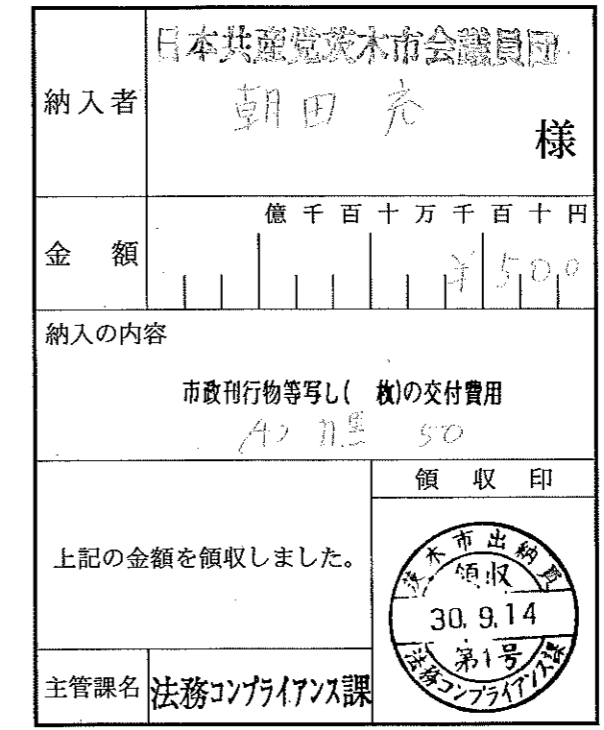 納入者
日本共産党茨木市会議員団
朝田 充
様
金額
億千百十万千百十円
¥500
納入の内容
市政刊行物等写し( 枚)の交付費用
A2 黒 50
領収印
上記の金額を領収しました。
茨木市出納員
領収
30.9.14
第1号
法務コンプライアンス課
主管課名
法務コンプライアンス課